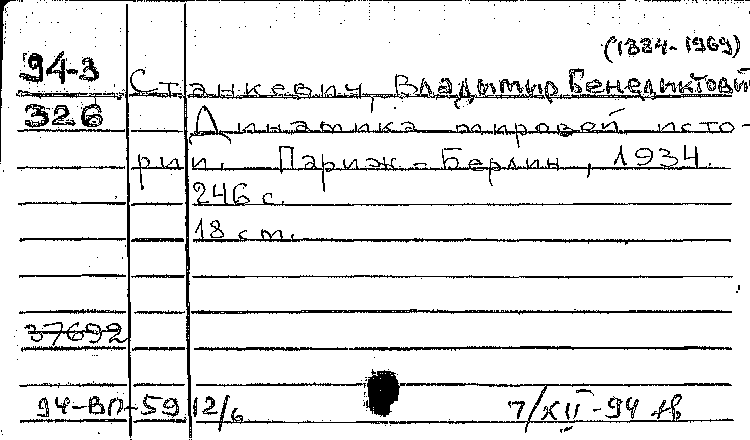 (1884-1969)
94-3 Станкевич, Владимир Бенедиктович
326 Динамика мировой исто-
рии. Париж-Берлин, 1934.
246 с.
18 см.
37692
94-ВП-59 12/6 7/XII-94